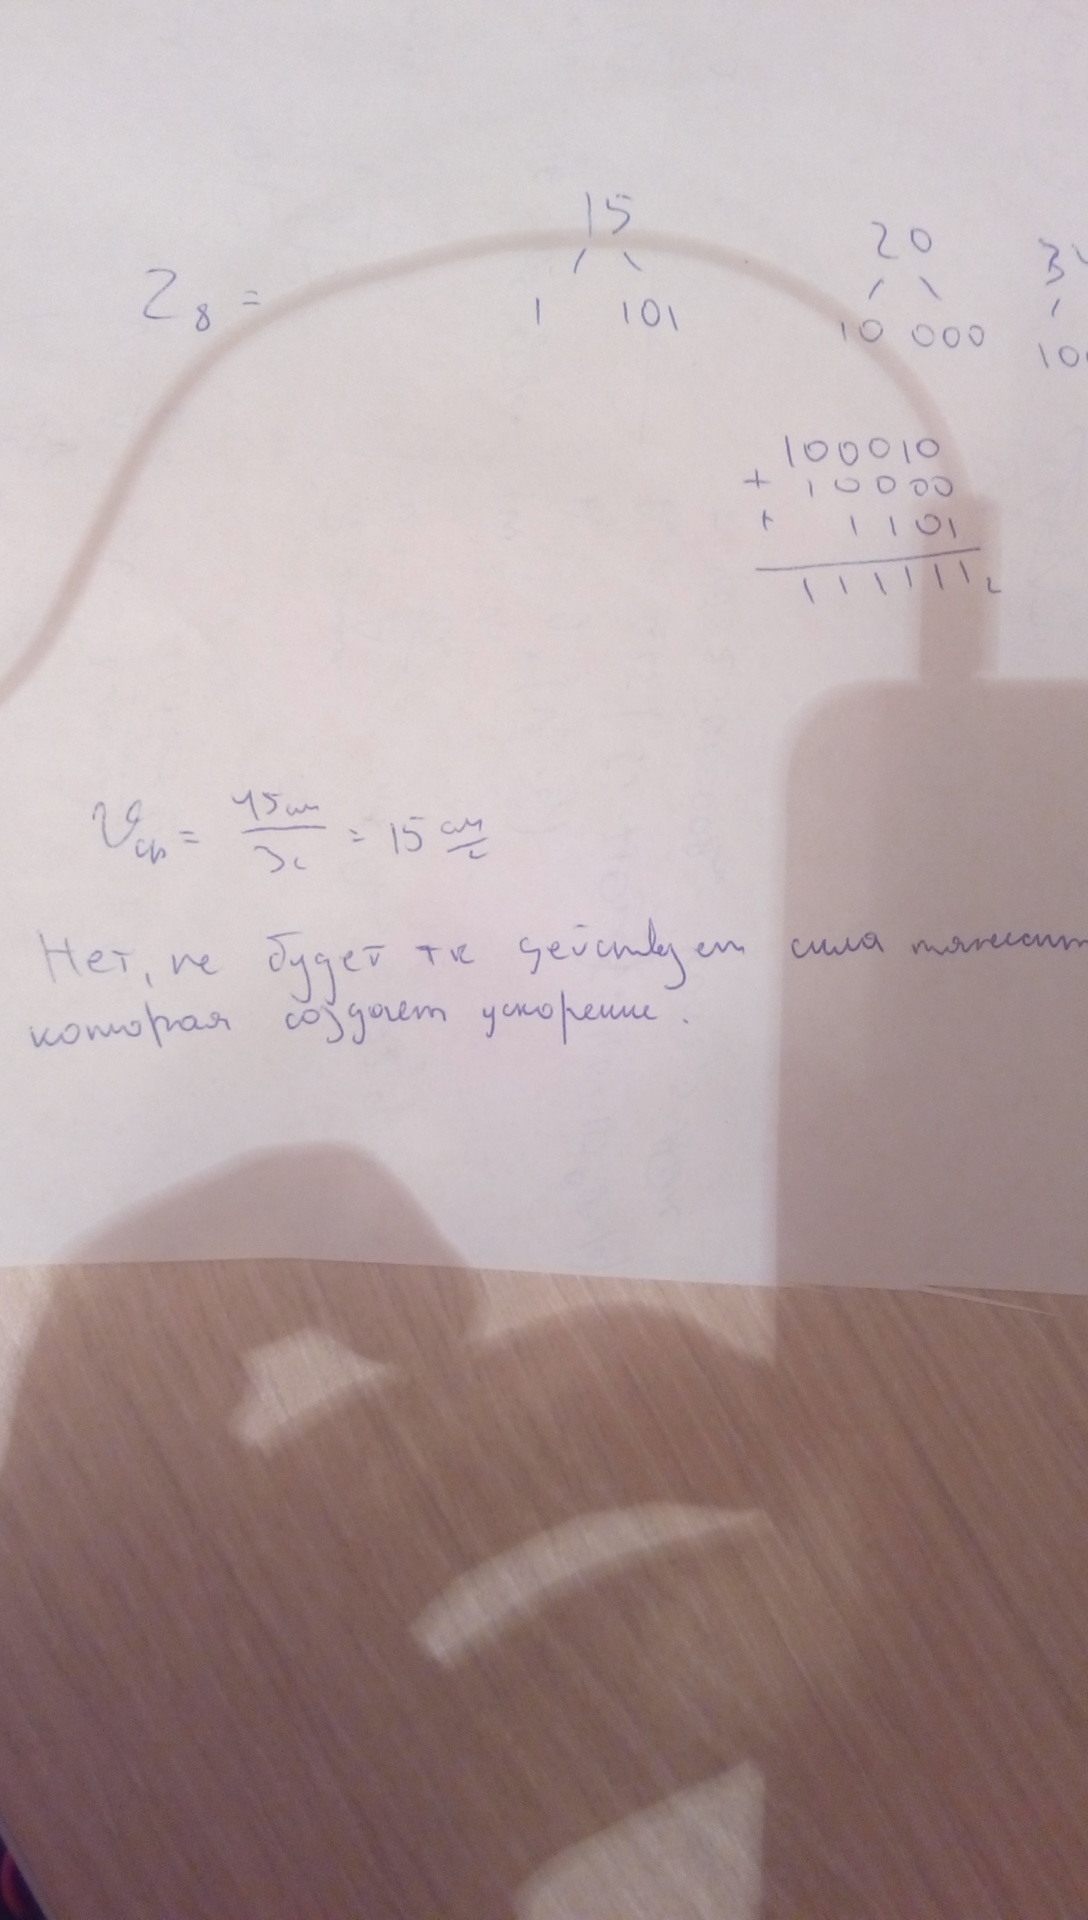 15 20
2₈ =
1 101 10 000
100010
+ 10000
+ 1101
111111₂
υср = 45см/3с = 15 см/с
Нет, не будет тк действует сила
которая создает ускорение.